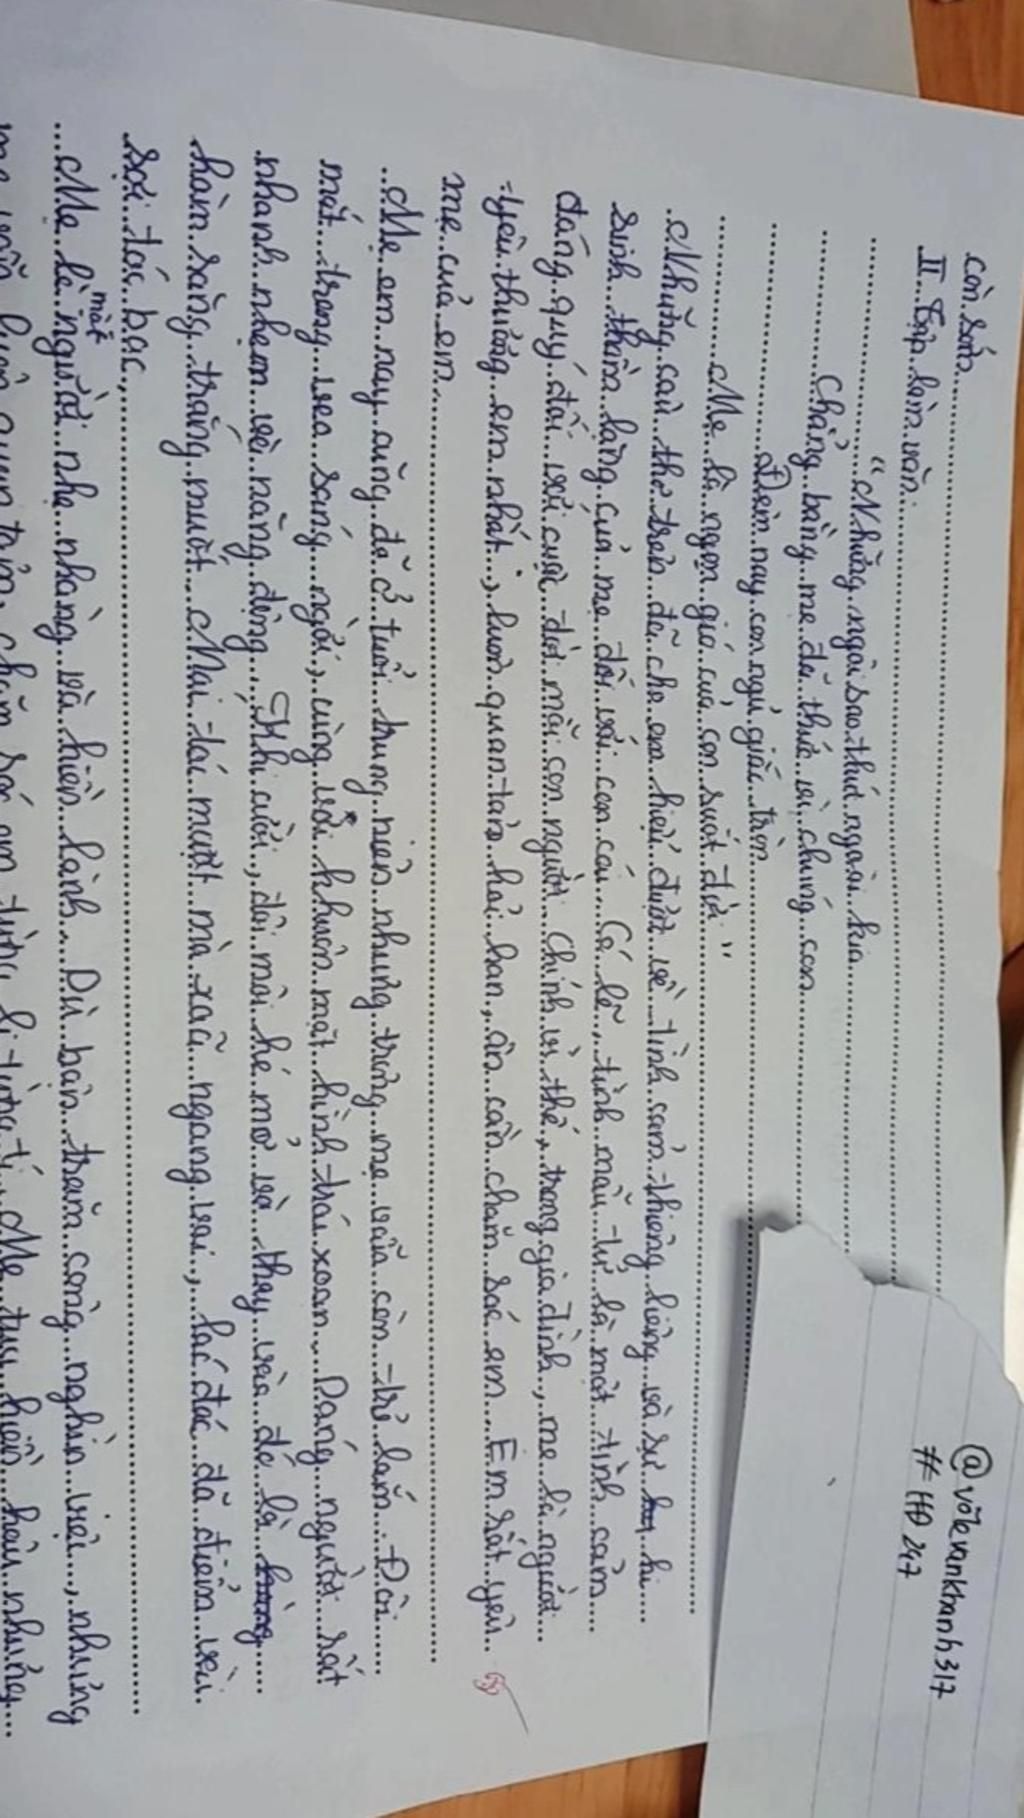 còn sớm
II. Tập làm văn:
"Những ngôi sao thức ngoài kia
Chẳng bằng mẹ đã thức vì chúng con
Đêm nay con ngủ giấc tròn
Mẹ là ngọn gió của con suốt đời"
Những câu thơ trên đã cho em hiểu được về tình cảm thiêng liêng và sự hi
sinh thầm lặng của mẹ đối với con cái. Có lẽ, tình mẫu tử là một tình cảm
đáng quý đối với cuộc đời mỗi con người. Chính vì thế, trong gia đình, mẹ là người
yêu thương em nhất, luôn quan tâm hỏi han, ân cần chăm sóc em. Em rất yêu
mẹ của em.
Mẹ em nay cũng đã ở tuổi trung niên nhưng trông mẹ vẫn còn trẻ lắm. Đôi
mắt trong veo sáng ngời, cùng với khuôn mặt hình trái xoan. Dáng người rất
nhanh nhẹn và năng động. Khi cười, đôi môi hé mở và thay vào đó là
hàm răng trắng muốt. Mái tóc mượt mà xoã ngang vai, lác đác đã điểm vài
sợi tóc bạc.
Mẹ là một người nhẹ nhàng và hiền lành. Dù bận trăm công nghìn việc, nhưng
mẹ vẫn luôn quan tâm, chăm sóc em từng li từng tí. Mẹ tuy hiền hậu nhưng
@võlevankhanh317
#HĐ247